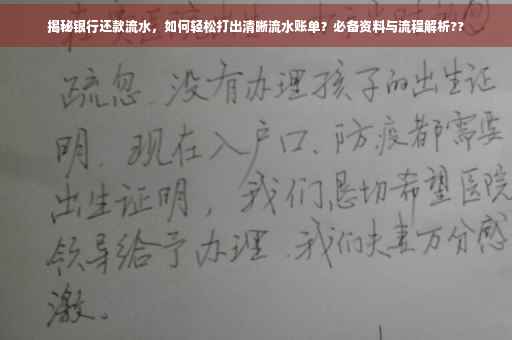 揭秘银行还款流水，如何轻松打出清晰流水账单？必备资料与流程解析??
疏忽、没有办理孩子的出生证
明、现在入户口、防疫都需要
出生证明，我们恳切希望医院
领导给予办理、我们夫妻万分感
激。